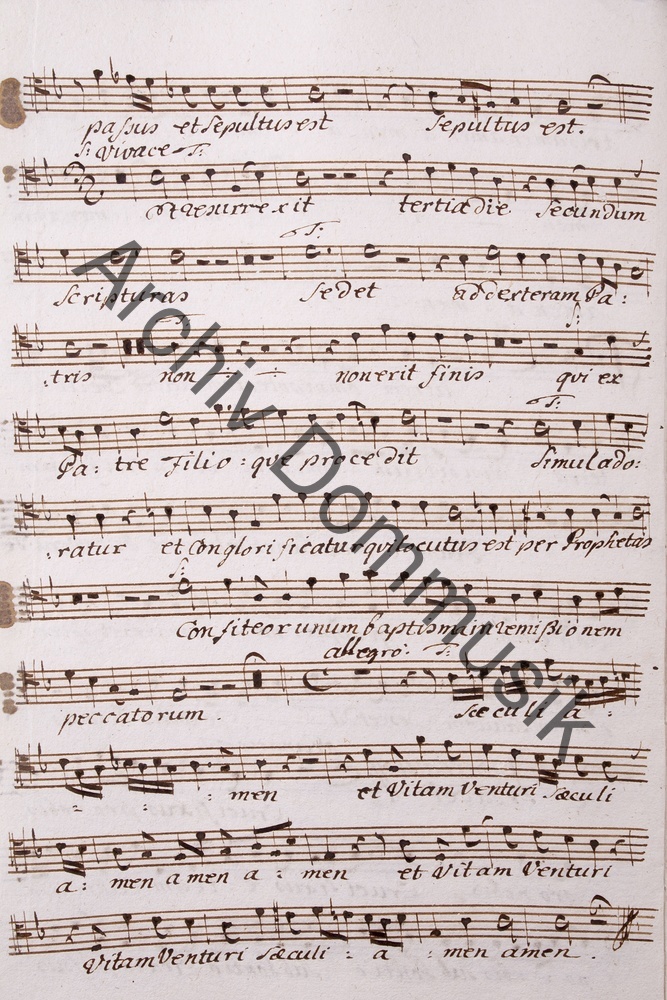 passus et sepultus est sepultus est.
S: Vivace T:
Et resurrexit tertia die secundum
T:
scripturas sedet ad dexteram Pa:
S:
:tris non non erit finis qui ex
T:
Pa: tre Filio: que procedit simul ado:
:ratur et Conglorificatur qui locutus est per Prophetas
S:
Confiteor unum baptisma in remissionem
allegro: T:
peccatorum. sæculi a:
: men et Vitam Venturi sæculi
a: men amen a: men et Vitam Venturi
Vitam Venturi sæculi: a: men amen.
Archiv Dommusik